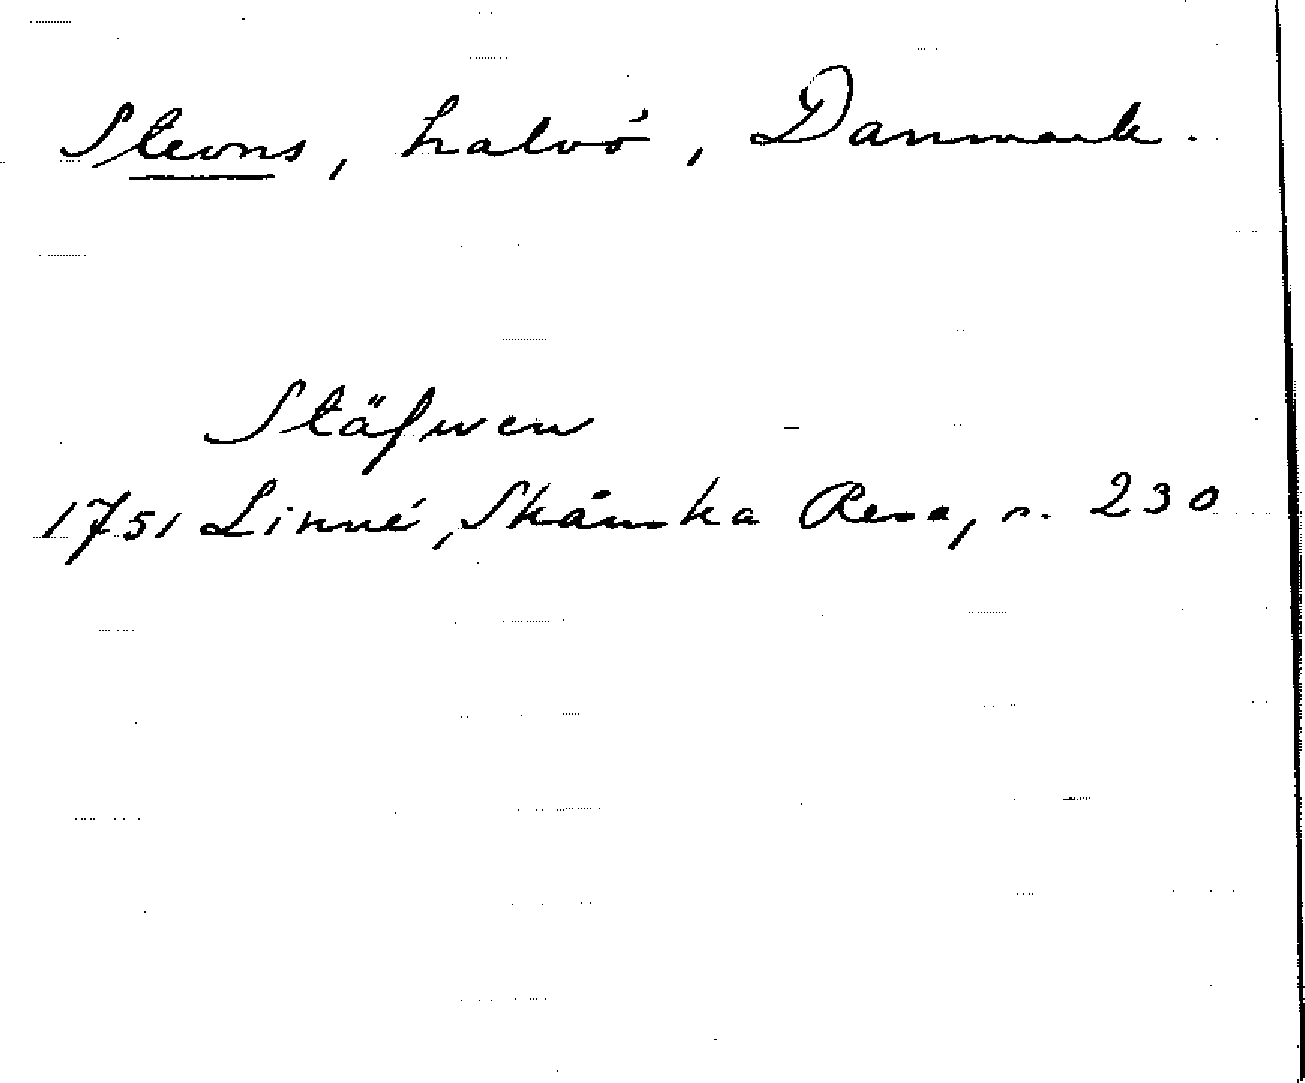 Stevns, halvö, Danmark.
Stäfwen
1751 Linné, Skånska Resa, s. 230